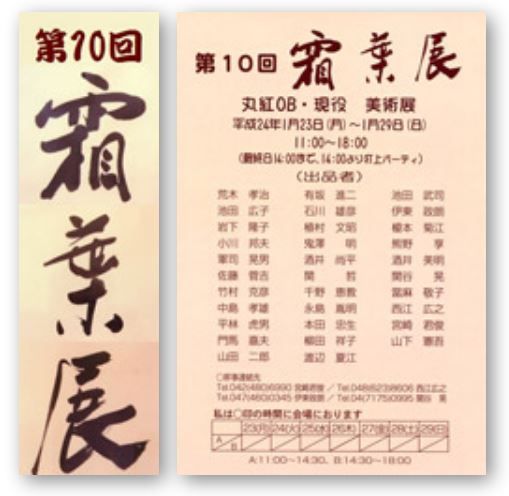 第10回
霜葉展
第10回 霜葉展
丸紅OB・現役 美術展
平成24年1月23日(月)～1月29日(日)
11:00～18:00
(最終日14:00まで、14:00より打上パーティ)
(出品者)
荒木 孝治 有坂 進二 池田 武司
池田 広子 石川 雄彦 伊東 政朗
岩下 隆子 植村 文昭 榎本 菊江
小川 邦夫 鬼澤 明 熊野 享
軍司 晃男 酒井 尚平 酒井 美明
佐藤 菅吉 関 哲 関谷 晃
竹村 克彦 千野 恵教 富麻 敬子
中島 孝雄 永島 胤明 西江 広之
平林 虎男 本田 忠生 宮崎 君俊
門馬 嘉夫 柳田 祥子 山下 憲吾
山田 二郎 渡辺 夏江
○幹事連絡先
Tel.042(480)6990 宮崎君俊 / Tel.048(623)8606 西江広之
Tel.047(460)0345 伊東政朗 / Tel.04(7175)0995 関谷 晃
私は○印の時間に会場におります
23(月) 24(火) 25(水) 26(木) 27(金) 28(土) 29(日)
A
B
A:11:00～14:30、B:14:30～18:00